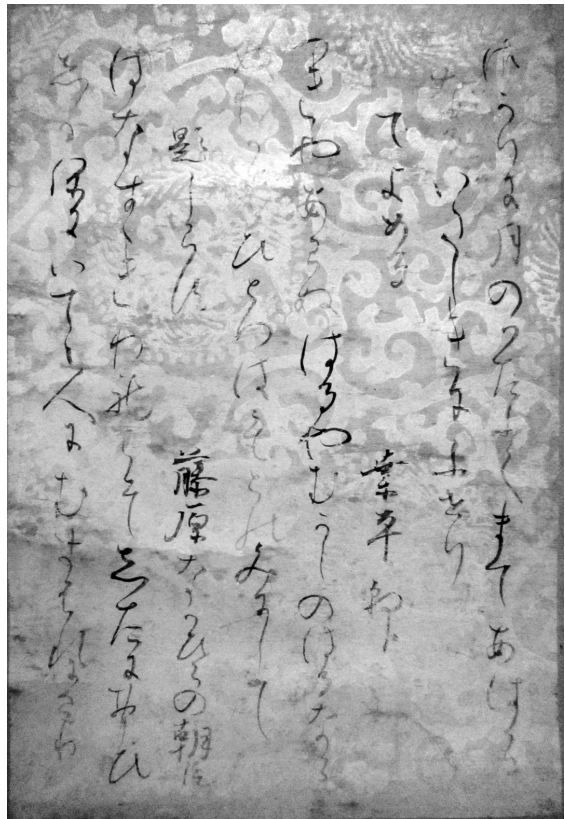 はかりに月のかたふくまてあはら
なるいたしきにふせり
てよめる　業平朝臣
月やあらぬはるやむかしのはるならぬ
わかみひとつはもとのみにして
題しらす　藤原なかひらの朝臣
はなすゝきわれこそしたにおもひ
しかほにいてゝ人にむすはれにけり